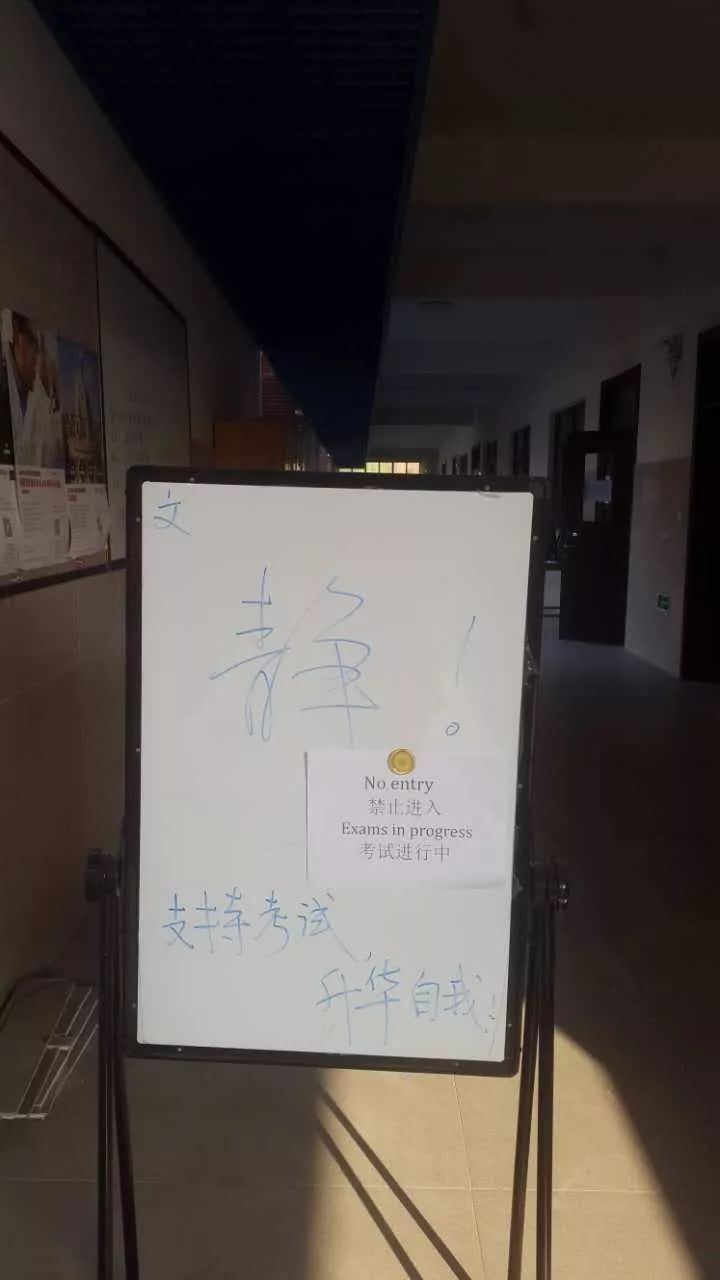 文
静!
No entry
禁止进入
Exams in progress
考试进行中
支持考试,
升华自我!